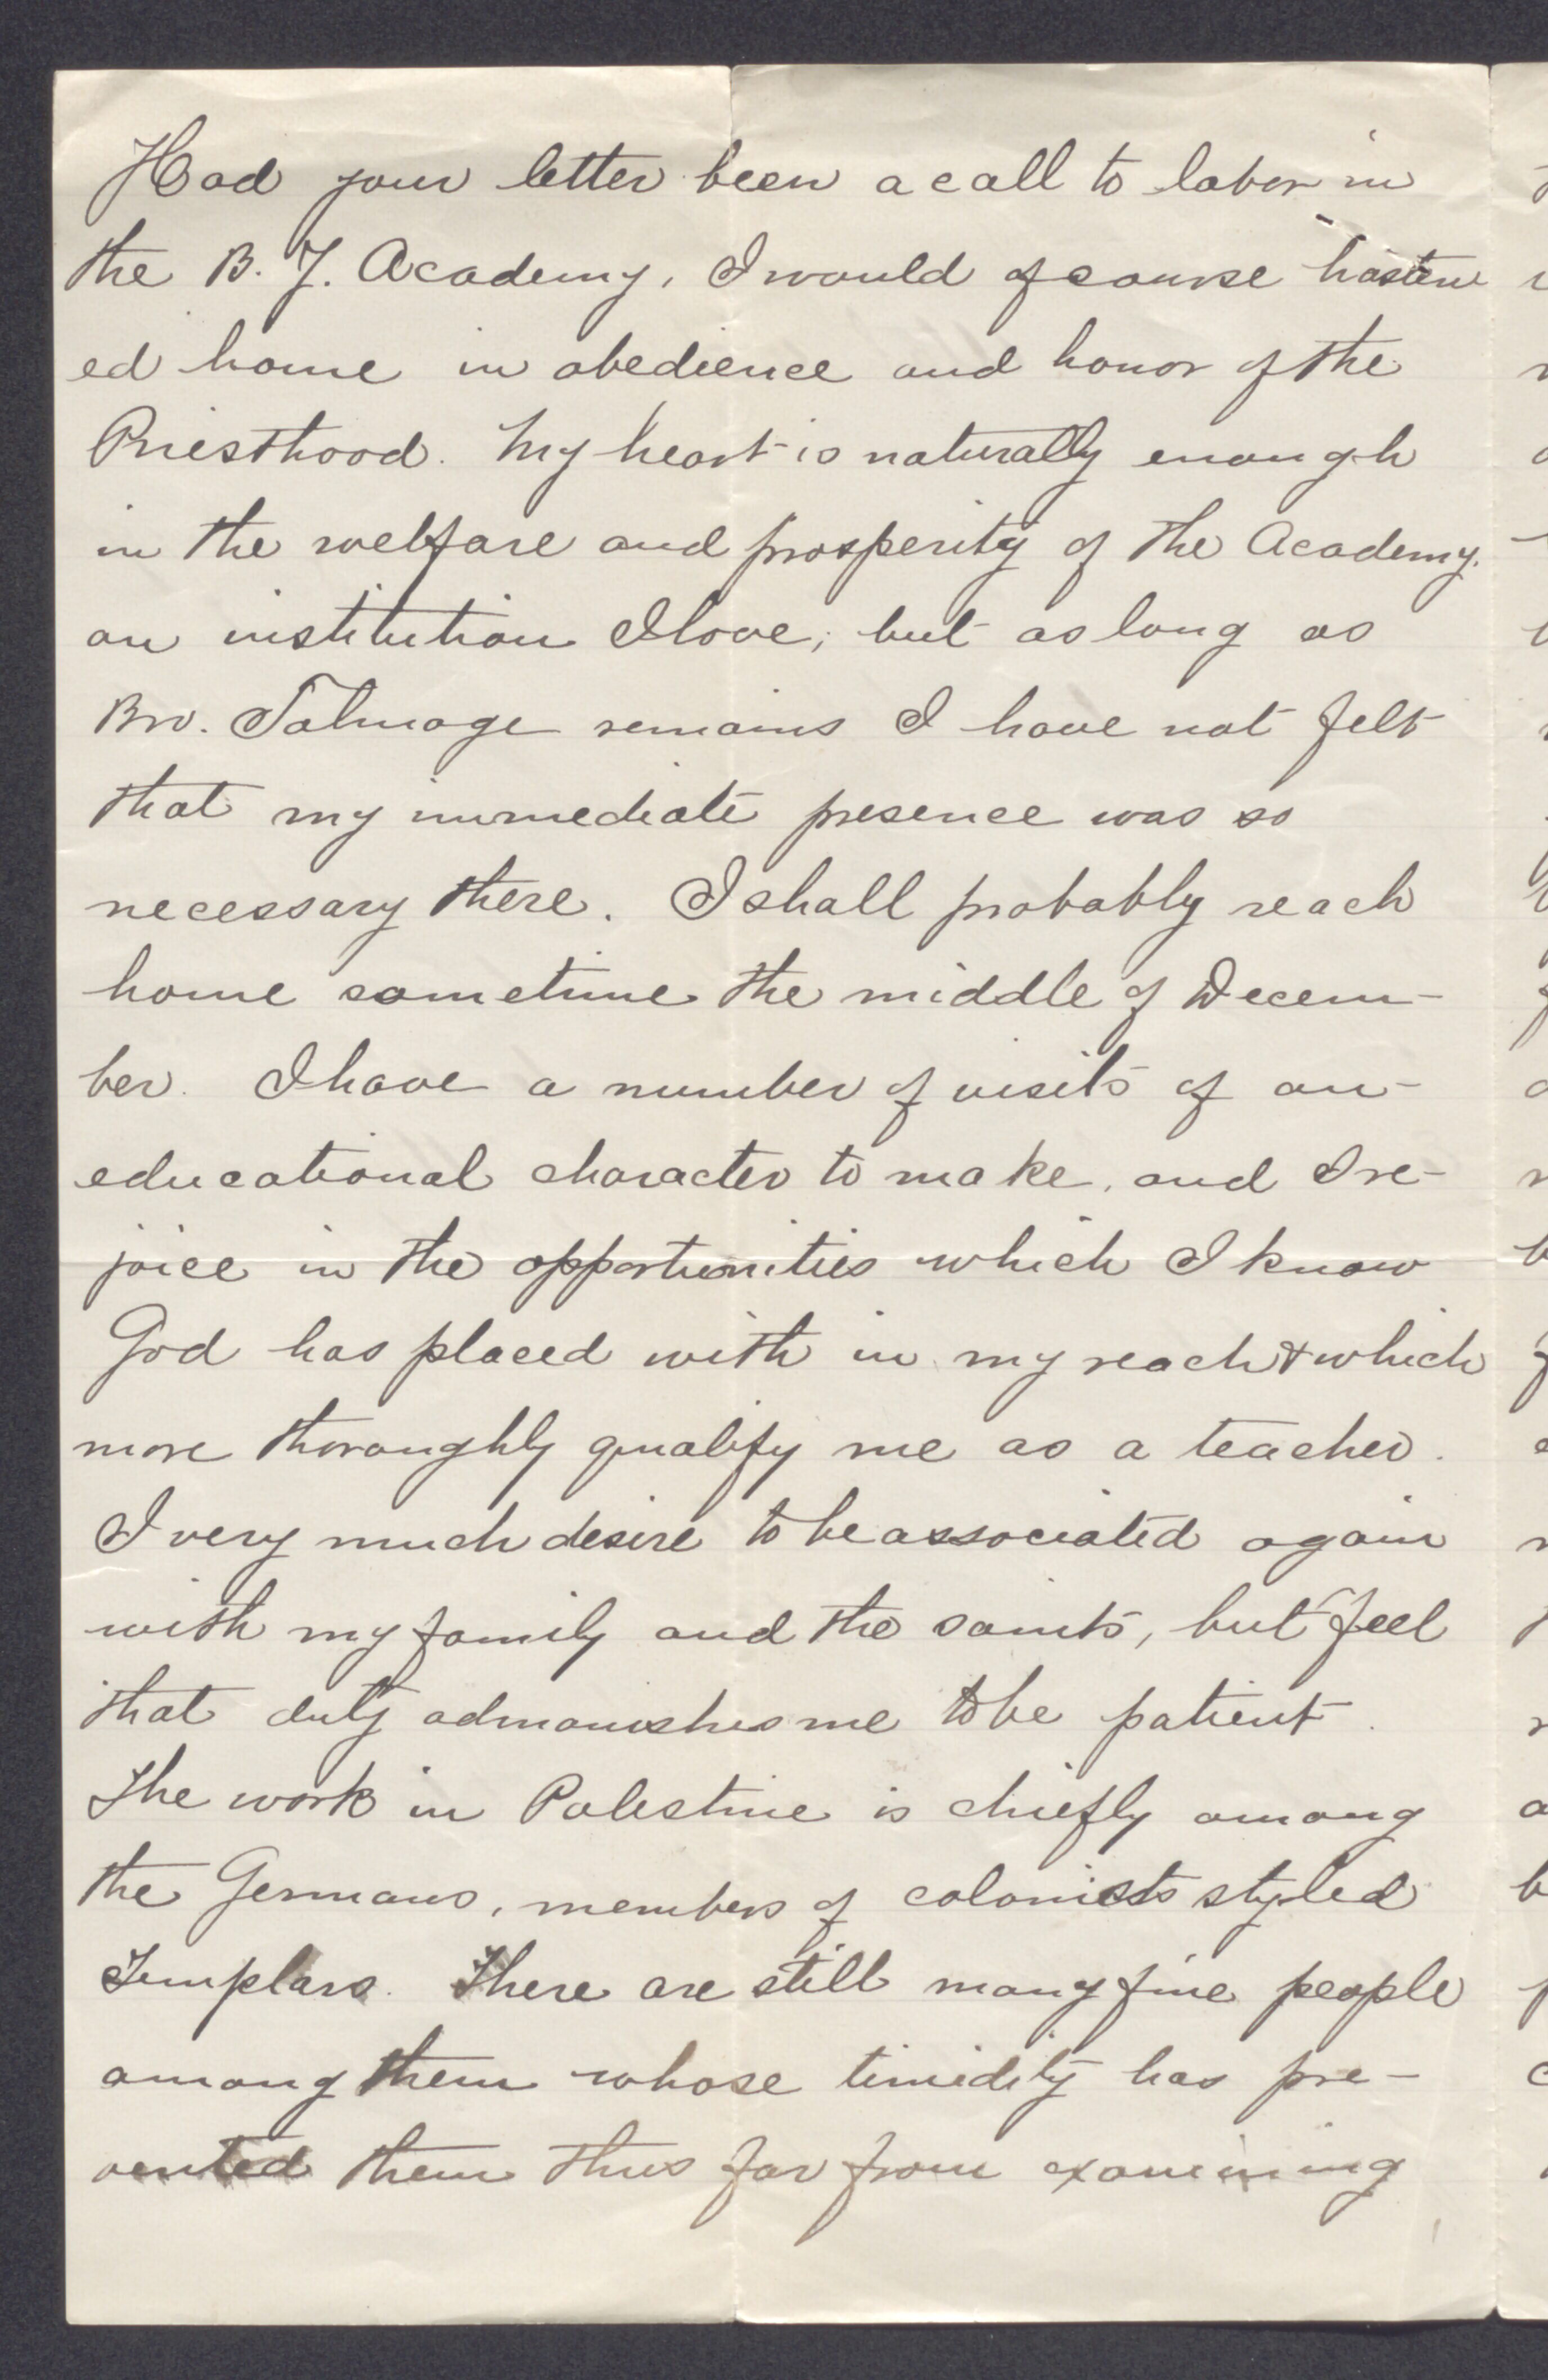 Had your letter been a call to labor in
the B. Y. Academy, I would of course hasten
ed home in obedience and honor of the
Priesthood. My heart is naturally enough
in the welfare and prosperity of the Academy.
an institution I love; but as long as
Bro. Talmage remains I have not felt
that my immediate presence was so
necessary there. I shall probably reach
home sometime the middle of Decem-
ber. I have a number of visits of an
educational character to make, and I re-
joice in the opportunities which I know
God has placed with in my reach & which
more thoroughly qualify me as a teacher.
I very much desire to be associated again
with my family and the saints, but feel
that duty admonishes me to be patient.
The work in Palestine is chiefly among
the Germans, members of colonists styled
Templars. There are still many fine people
among them whose timidity has pre-
vented them thus far from examining